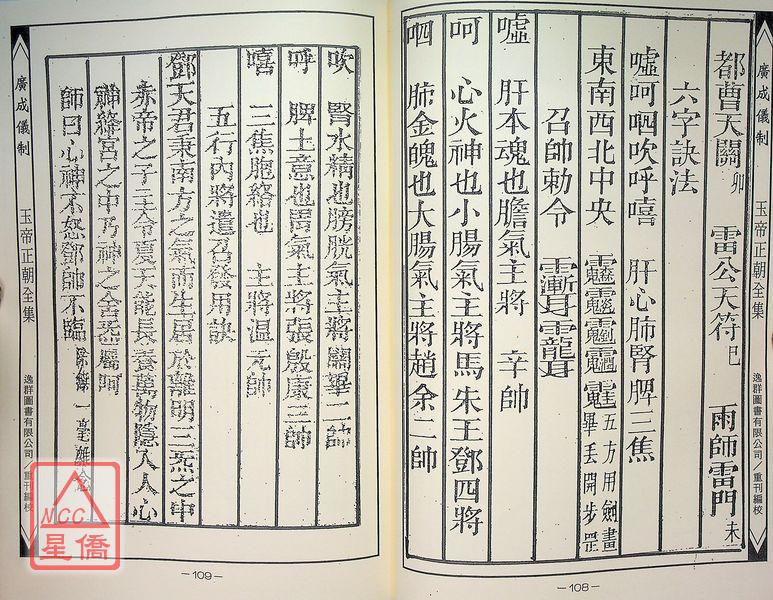 廣成儀制 玉帝正朝全集 逸群圖書有限公司／重刊編校
都曹天關卯 雷公天符巳 雨師雷門未
六字訣法
噓呵呬吹呼嘻 肝心肺腎脾三焦
東南西北中央 五方用劍畫畢丟開步罡
召帥勅令
噓 肝本魂也膽氣主將 辛帥
呵 心火神也小腸氣主將馬朱王鄧四將
呬 肺金魄也大腸氣主將趙余二帥
—108—
吹 腎水精也膀胱氣主將關畢二帥
呼 脾土意也胃氣主將張殷康三帥
嘻 三焦胞絡也 主將温元帥
五行內將遣召發用訣
鄧天君秉南方之氣而生居於離明三炁之中
赤帝之子主令夏天能長養萬物隱人人心
神絳宮之中乃神之舍炁屬呵
師曰心神不怒鄧帥不臨 除 一毫雜念
廣成儀制 玉帝正朝全集 逸群圖書有限公司／重刊編校
—109—
MCC
星僑